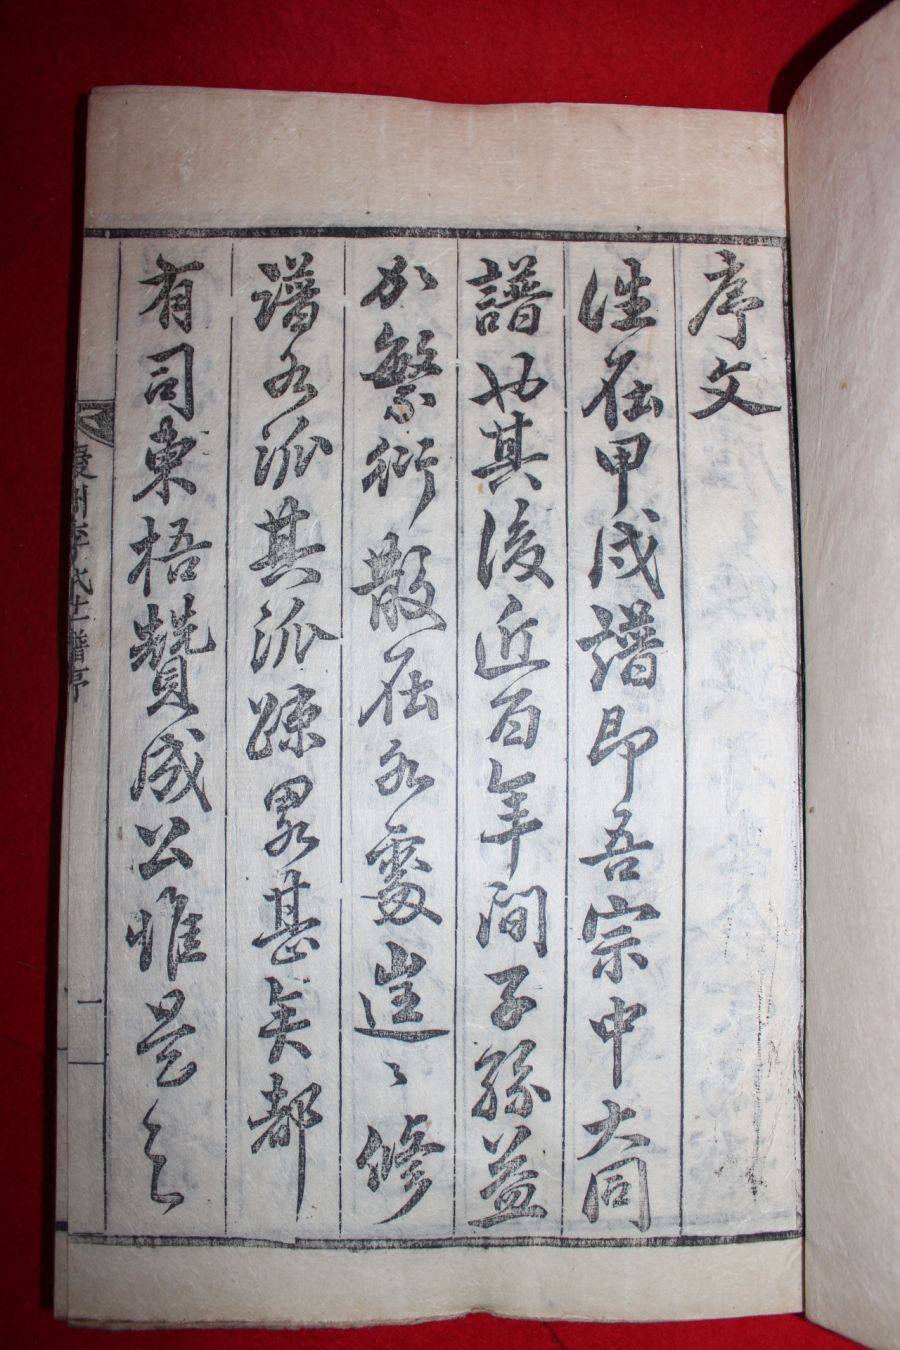 序文
往在甲戌譜即吾宗中大同
譜也其後近百年間子孫益
加繁衍散在各處這〻修
譜各派其派跡畧甚矣都
有司東梧贊成公惟是之
慶州李氏世譜序
一